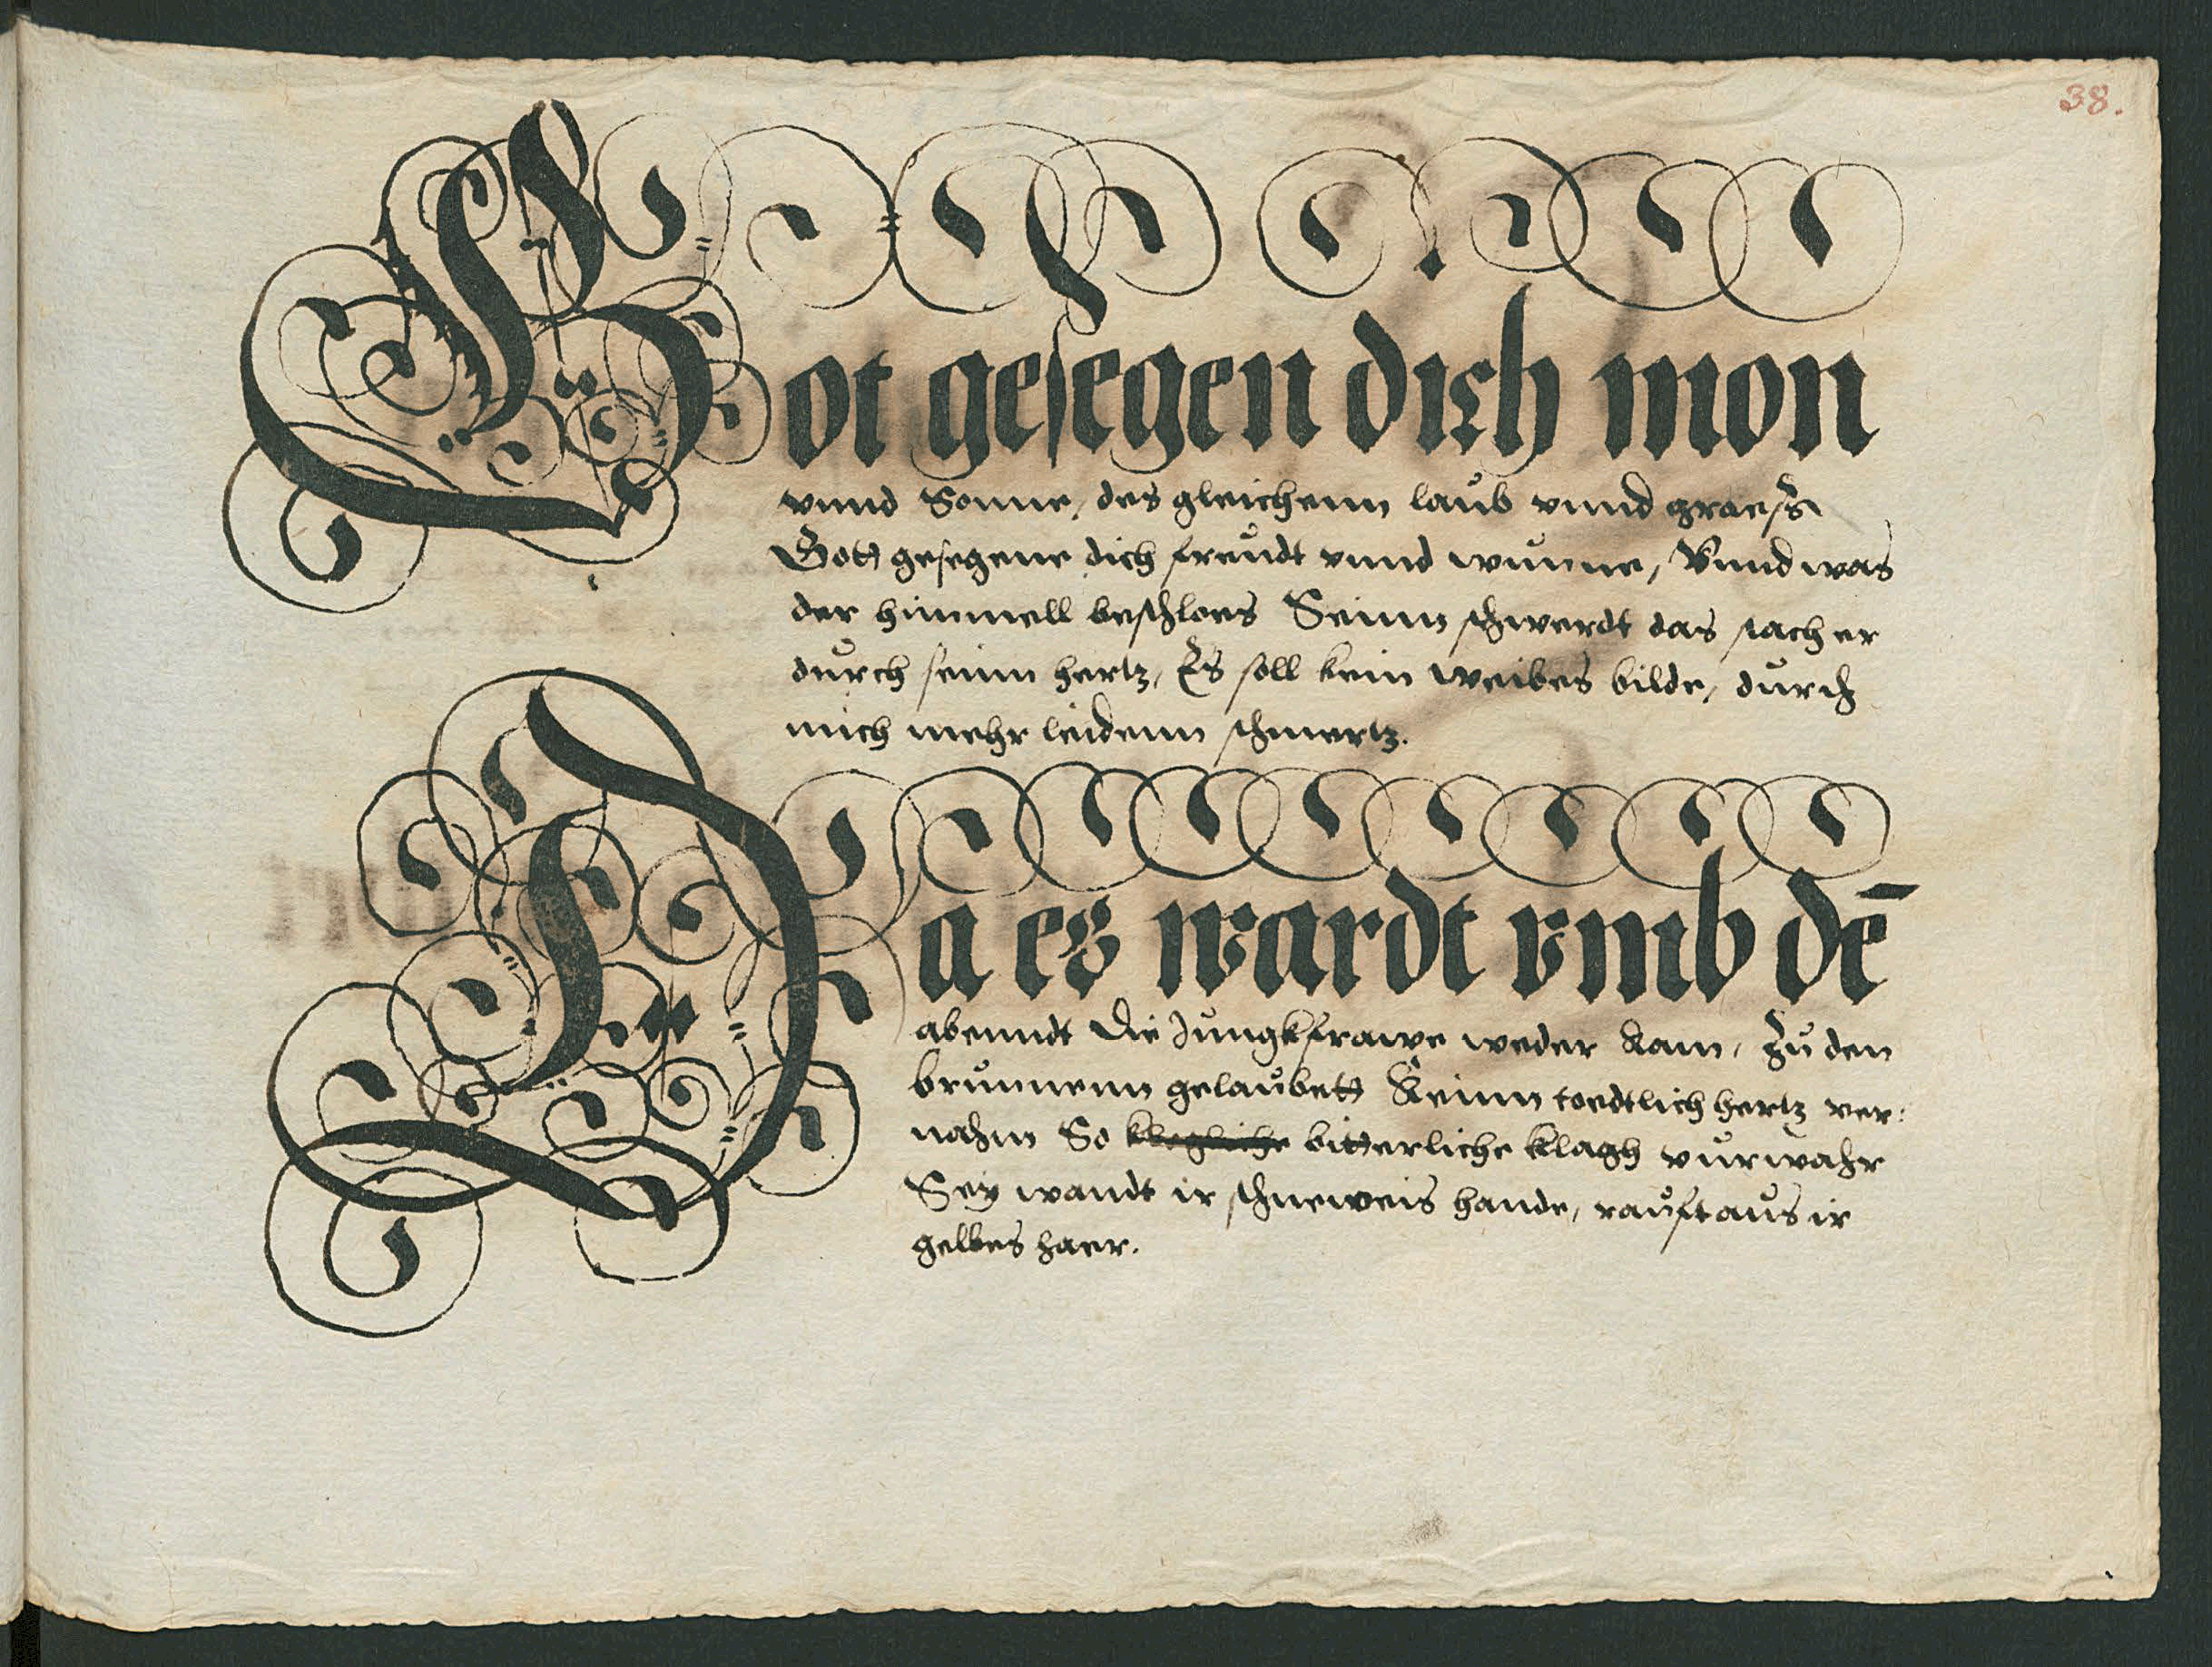 38.
Got gesegen dich mon
vnnd Sonne, des gleichenn laub vnnd graeß
Gott gesegene dich freudt vnnd wunne, Vnnd was
der himmell beschloes Seinn schwerdt das stach er
durch seinn hertz, Es soll kein weibes bilde, durch
mich mehr leidenn schmertz.
Da es wardt vmb dē
abenndt Die Jungkfrawe weder kam, Zu den
brunnenn gelaubett Keinn toedtlich hertz ver:
nahm So klegliche bitterliche klagh vurwahr
Sey wandt ir schneweis hande, rauft aus ir
gelbes haer.